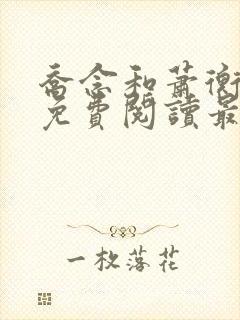 喬念和蕭衡
免費閱讀最
一枚落花